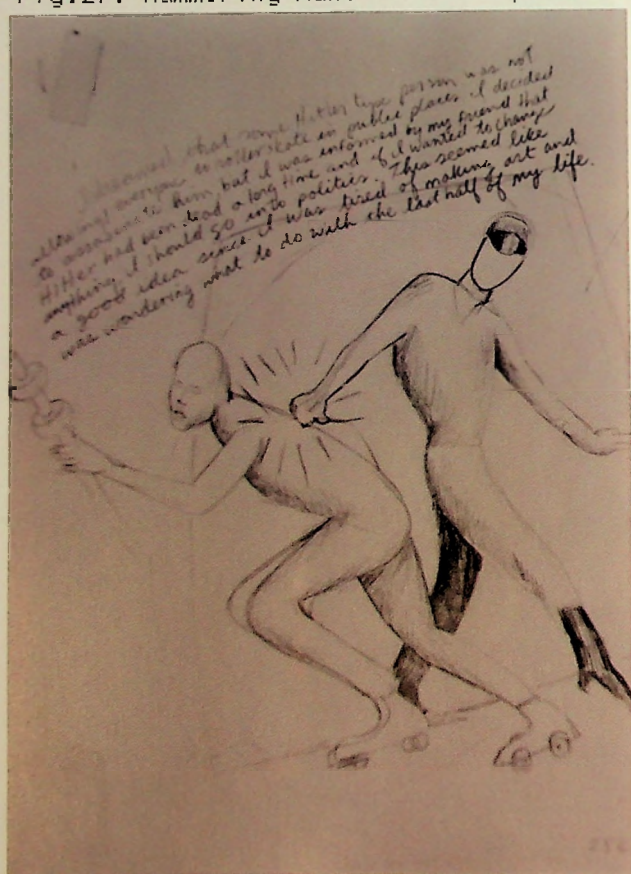 that some Hitler type person was not
allowing everyone to rollerskate in public places. I decided
to assassinate him but I was informed by my friend that
Hitler had been dead a long time and if I wanted to change
anything I should go into politics. This seemed like
a good idea since I was tired of making art and
was wondering what to do with the last half of my life.